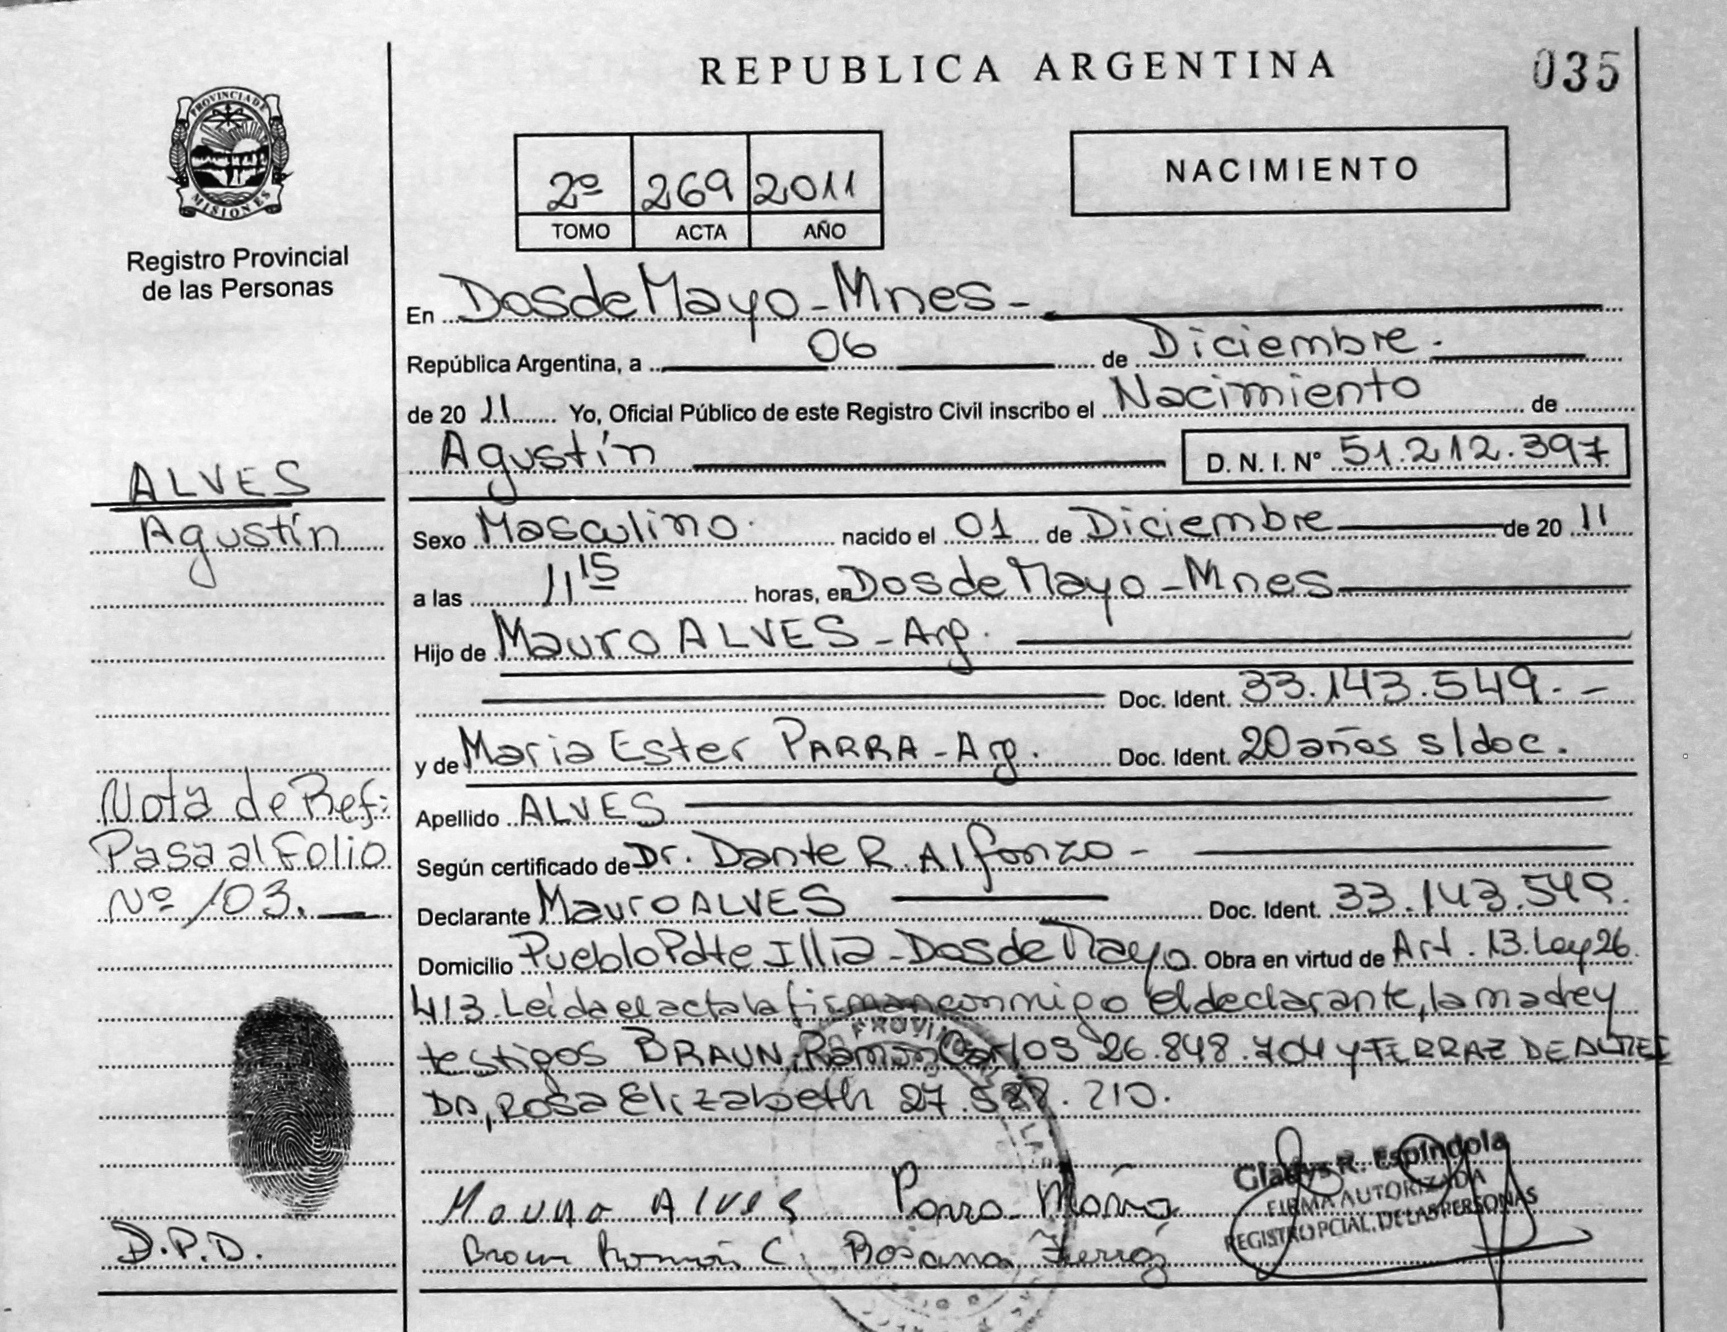 REPUBLICA ARGENTINA
035
PROVINCIA DE
MISIONES
Registro Provincial
de las Personas
2º 269 2011
TOMO ACTA AÑO
NACIMIENTO
En Dos de Mayo - Mnes -
República Argentina, a 06 de Diciembre.
de 20 11 Yo, Oficial Público de este Registro Civil inscribo el Nacimiento de
Agustín D. N. I. Nº 51.212.397
ALVES
Agustín
Sexo Masculino. nacido el 01 de Diciembre de 20 11
a las 11 15 horas, en Dos de Mayo - Mnes
Hijo de Mauro ALVES - Arg.
Doc. Ident. 33.143.549. -
y de Maria Ester PARRA - Arg. Doc. Ident. 20 años s/doc.
Apellido ALVES
Según certificado de Dr. Dante R. Alfonzo -
Declarante Mauro ALVES Doc. Ident. 33.143.549.
Domicilio Pueblo Pdte Illia - Dos de Mayo. Obra en virtud de Art. 13. Ley 26.
413. Leída el acta la firman conmigo el declarante, la madre y
testigos BRAUN, Ramón Carlos 26.848.704 y FERRAZ DE
DA, Rosa Elizabeth 27.588.210.
Nota de Ref:
Pasa al Folio
Nº 103.
D.P.D.
Mauro Alves Parra María
Braun Ramón C. Rosana Ferraz
Gladys R. Espíndola
FIRMA AUTORIZADA
REGISTRO PCIAL. DE LAS PERSONAS